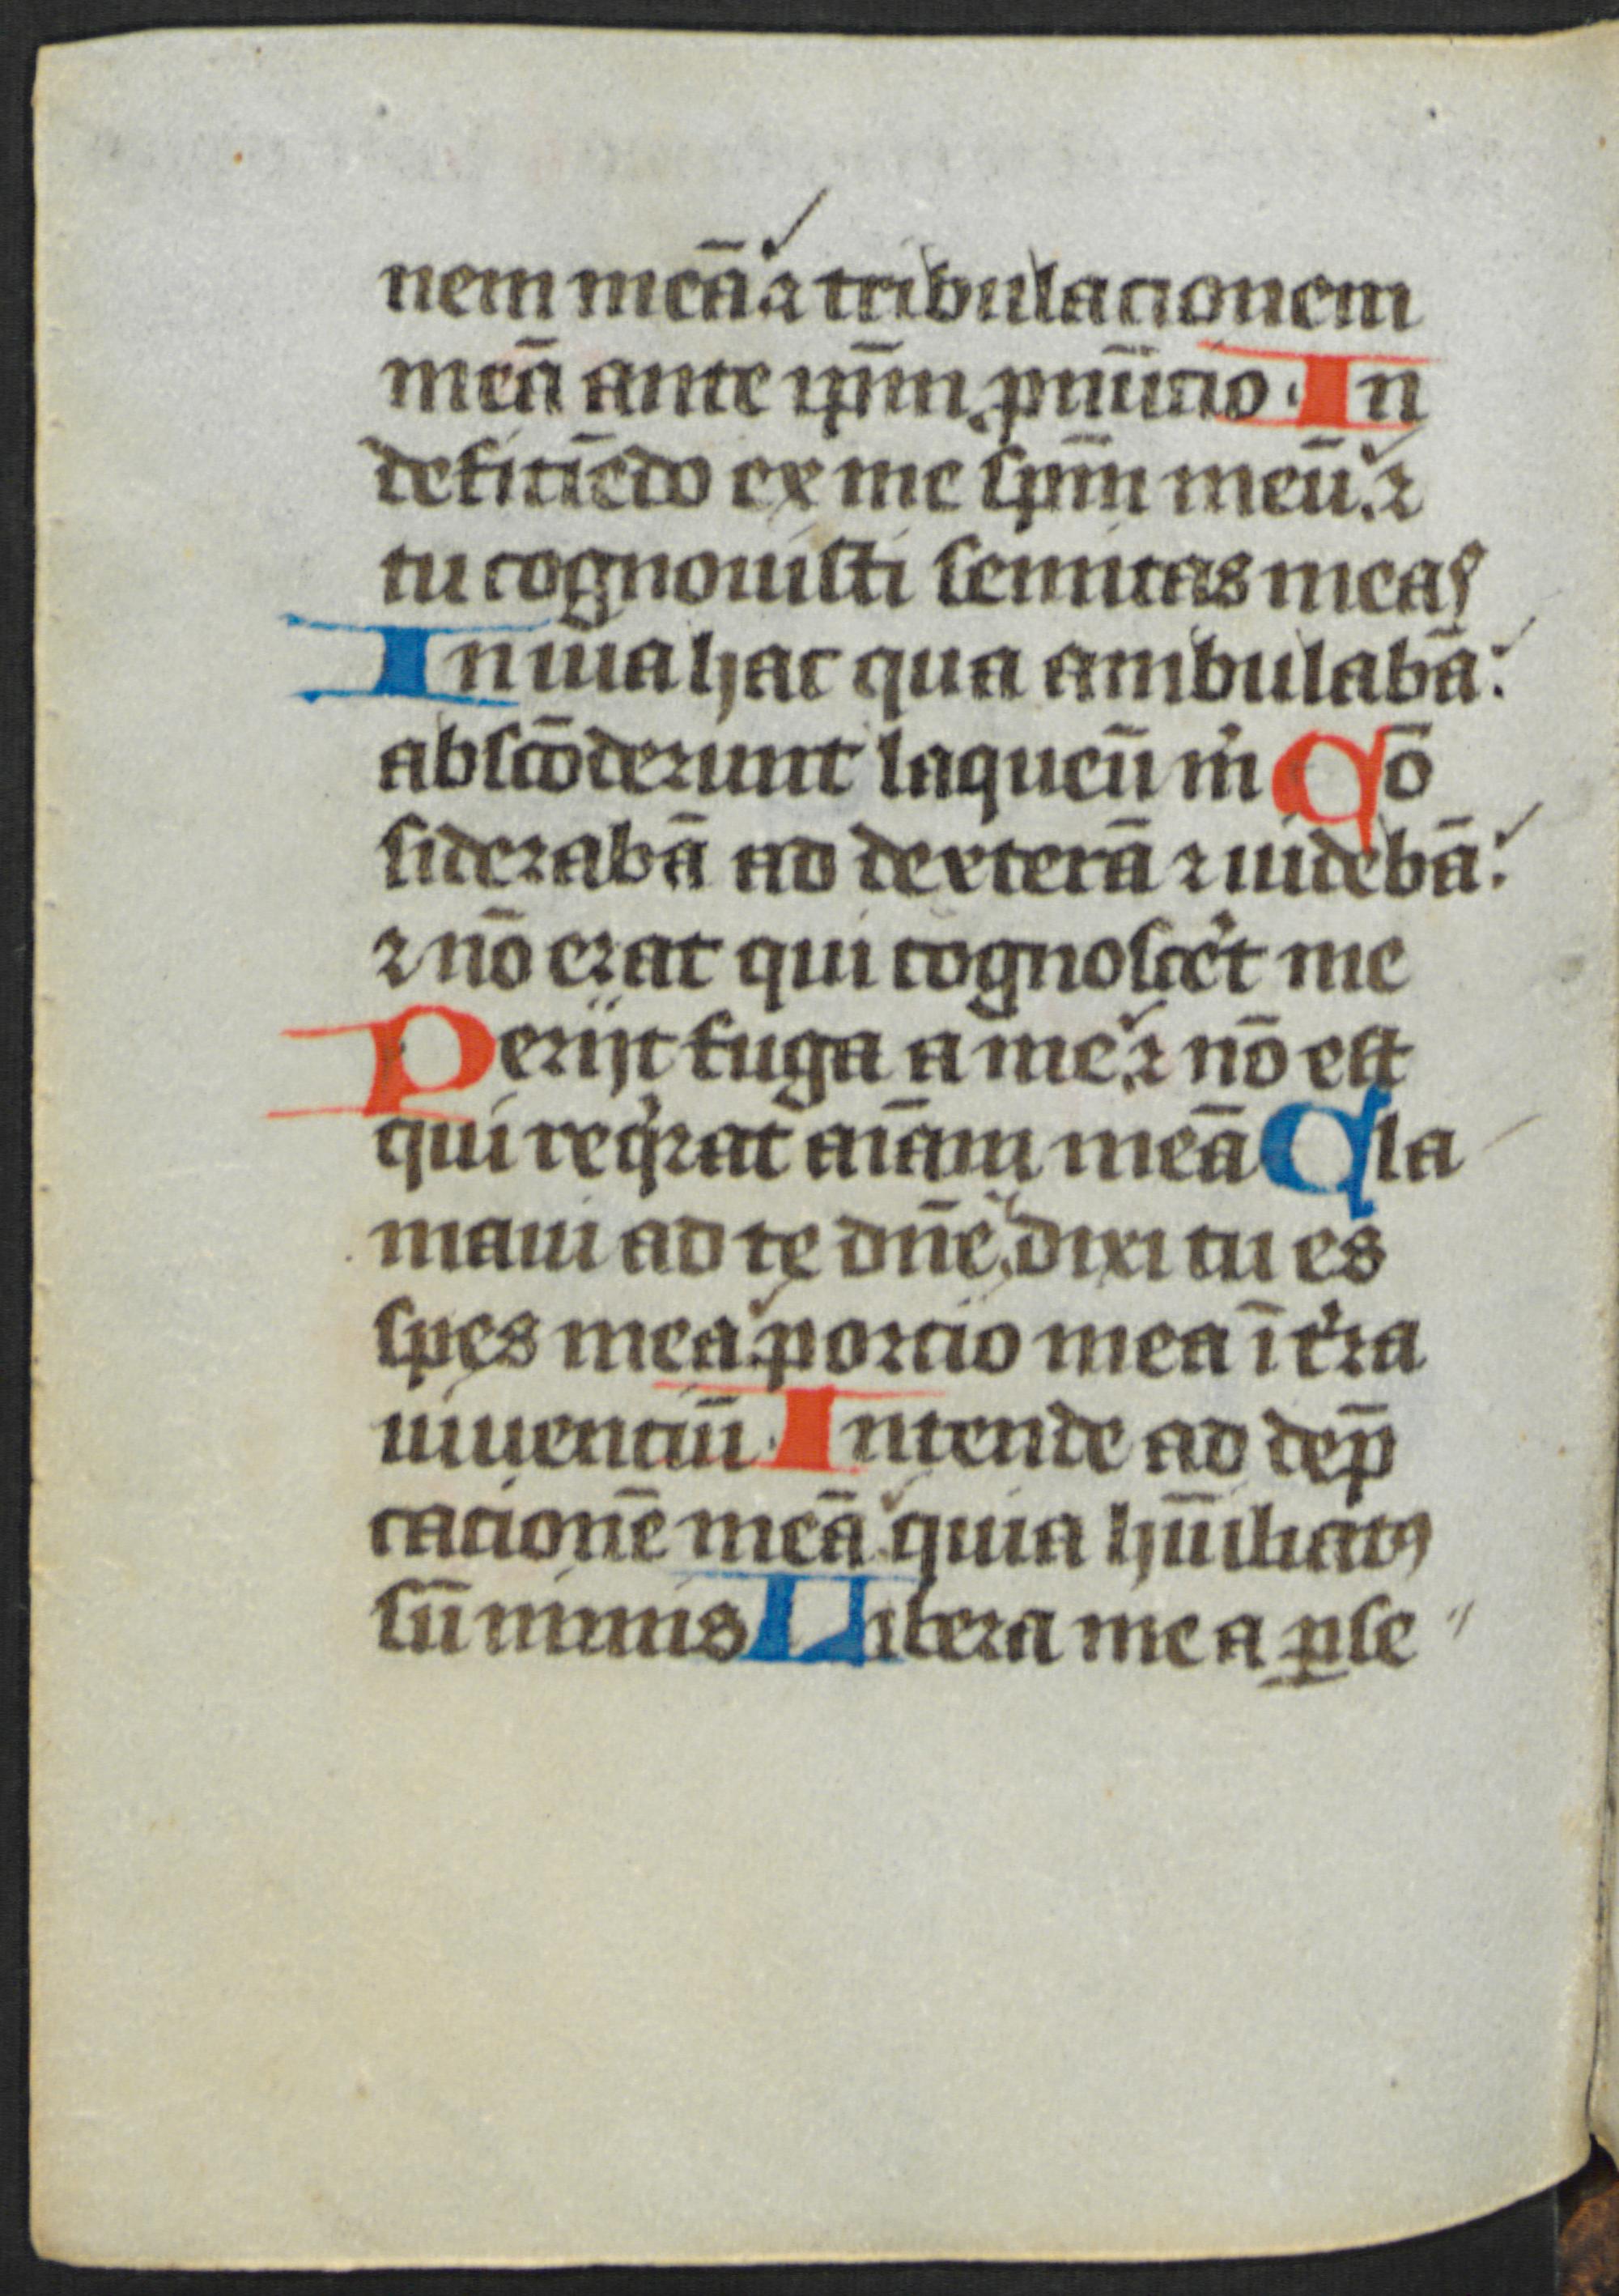 nem meā ⁊ tribulacionem
meā ante ip̄m ꝓnūcio. In
deficiēdo ex me sp̄m meū ⁊
tu cognouisti semitas meas
In uia hac qua ambulabā:
abscōderunt laqueū m̓ Cō
siderabā ad dexterā ⁊ uidebā:
⁊ nō erat qui cognosc̓et me
Perijt fuga a me ⁊ nō est
qui req̓rat aīam meā Cla
maui ad te dn̄e dixi tu es
spes mea porcio mea ī t̓ra
uiuenciū. Intende ad dep̄
cacionē meā quia hūiliatꝰ
sū nimis Libera me a ꝑse〃